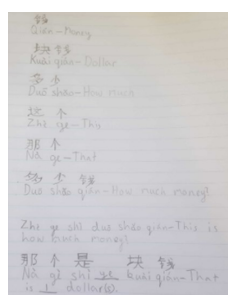 钱
Qián-Money
块钱
Kuài qián-Dollar
多少
Duō shǎo-How much
这个
Zhè ge-This
那个
Nà ge-That
多少钱
Duō shǎo qián-How much money?
Zhè ge shì duō shǎo qián-This is
how much money?
那个是 块钱
Nà gè shì kuài qián-That
is dollar(s).